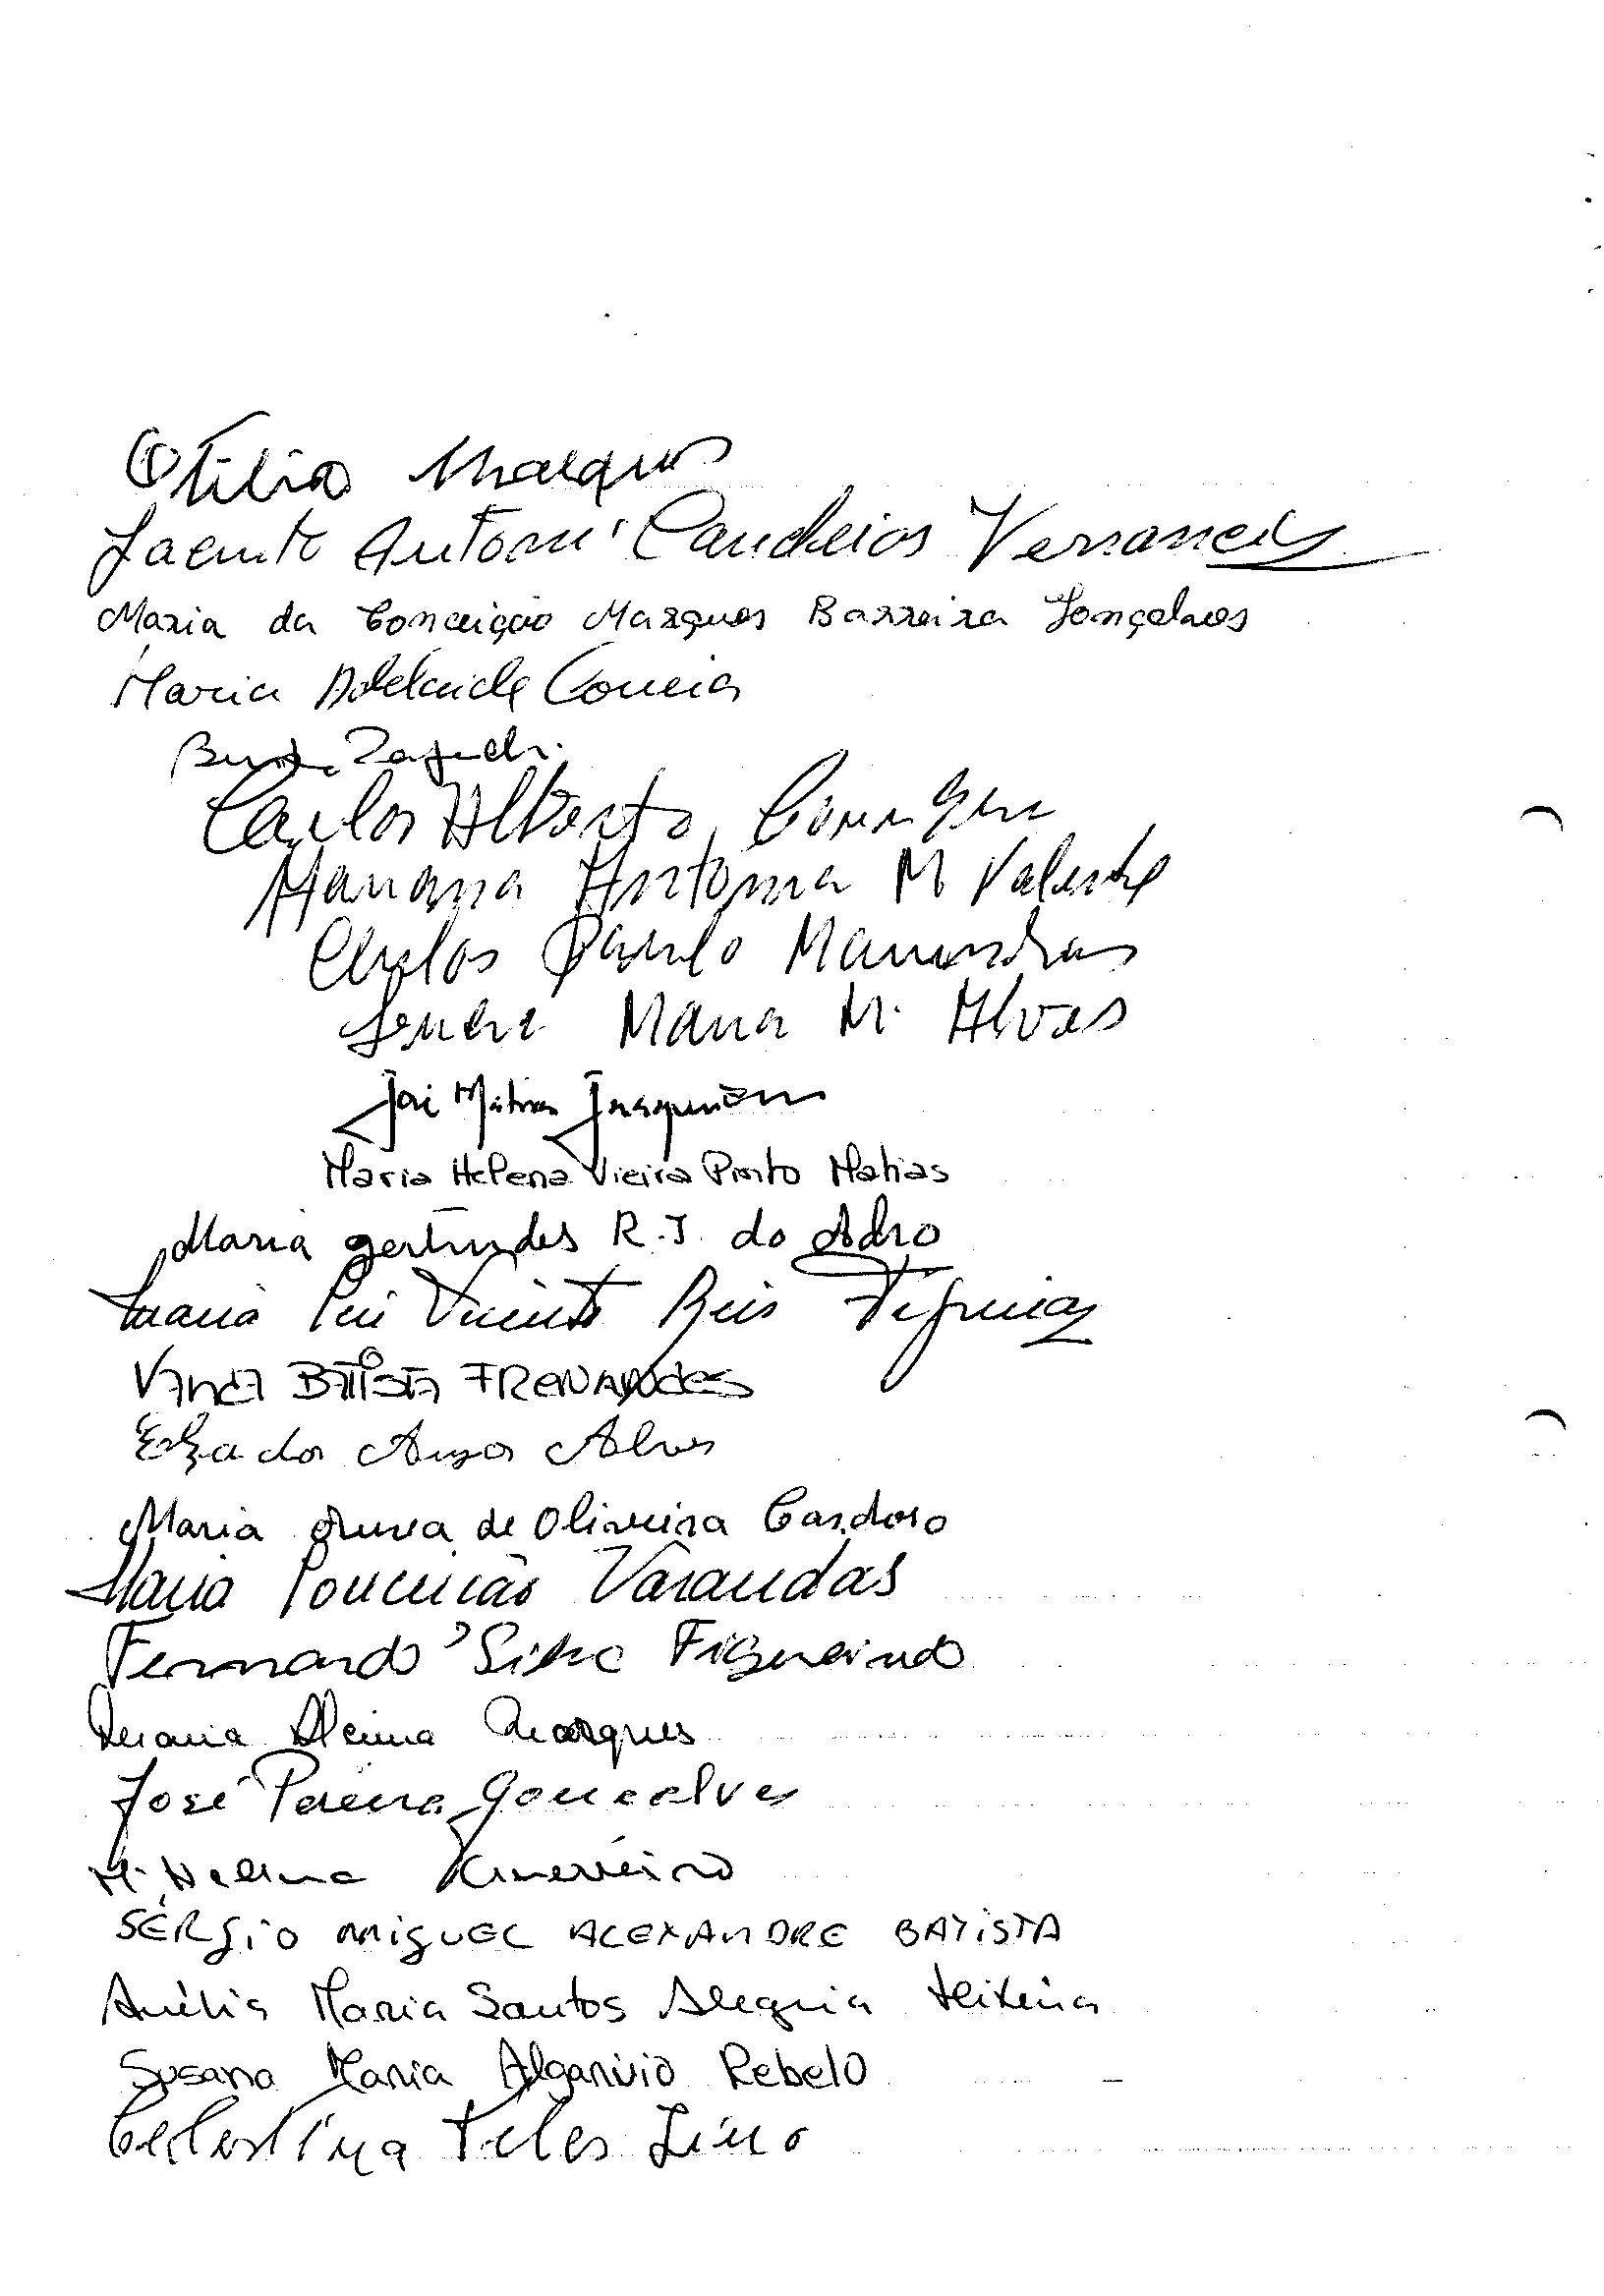 Otilia Marques
Jacinto António Candeias
Maria da Conceição Marques Barreira Gonçalves
Maria Adelaide Correia
Carlos Alberto
Mariana Antonia M Valente
Carlos Paulo
Maria M. Alves
José Matias Joaquim
Maria Helena Vieira Pinto Matias
Maria gertrudes R. J. do Adro
Maria Vicente Reis
VANDA BATISTA FRENANDES
Elza dos Anjos Alves
Maria de Oliveira Cardoso
Maria Conceicão Varandas
Fernando Silva Figueiredo
Maria Marques
José Pereira Goncalves
SÉRGIO MIGUEL ALEXANDRE BATISTA
Maria Santos Alegria Teixeira
Susana Maria Algarvio Rebelo
Celestina Teles Lino